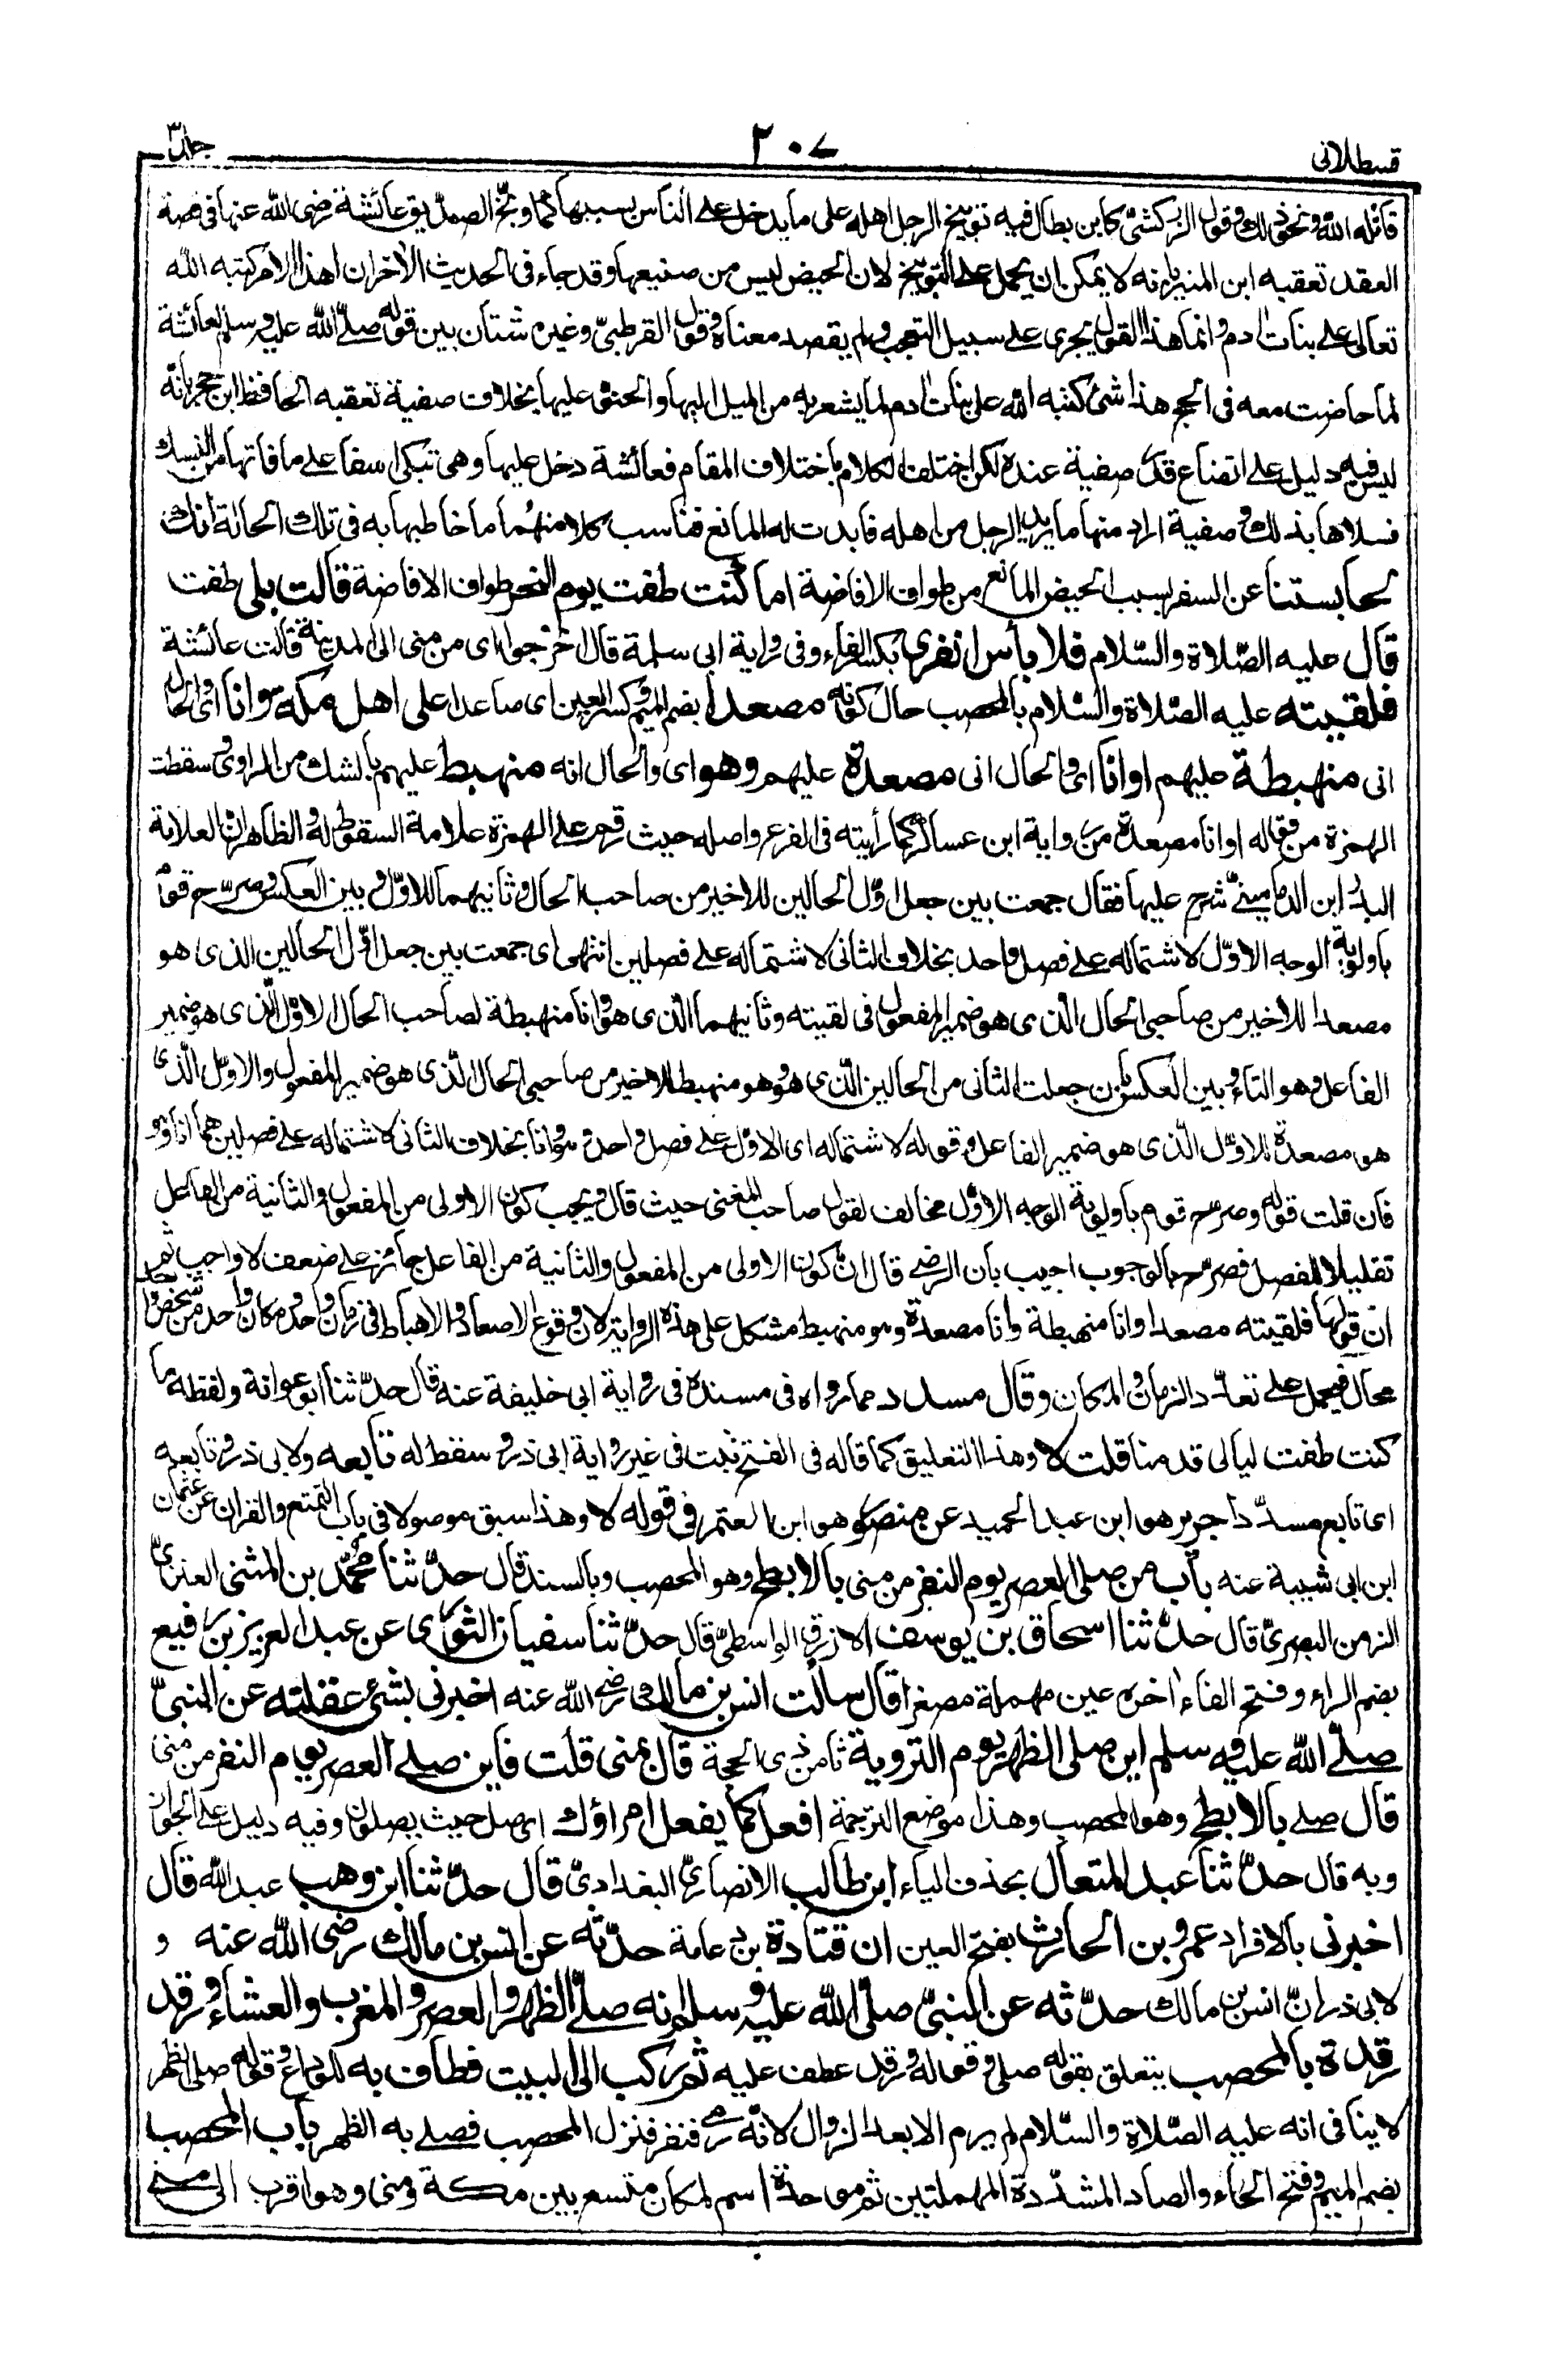 قسطلانى ٢٠٧ جلد٣
قاتله الله ونحو ذلك وقول الزركشىّ كابن بطال فيه توبيخ الرجل اهله على ما يدخل على الناس بسببها كما وبّخ الصديق عائشة رضى الله عنها فى قصة
العقد تعقبه ابن المنير بانه لا يمكن ان يحمل على التوبيخ لان الحيض ليس من صنيعها وقد جاء فى الحديث الاخر ان هذا الامر كتبه الله
تعالى على بنات ادم وانما هذا القول يجرى على سبيل التعجب ولم يقصد معناه وقول القرطبىّ وغيره شتان بين قوله صلّى الله عليه وسلم لعائشة
لما حاضت معه فى الحج هذا شئ كتبه الله على بنات ادم لما يشعر به من الميل اليها والحنق عليها بخلاف صفية تعقبه الحافظ ابن حجر بانّه
ليس فيه دليل على اتضاع قدر صفية عنده لكن اختلف الكلام باختلاف المقام فعائشة دخل عليها وهى تبكى اسفا على ما فاتها من النسك
فسلاها بذلك وصفية اراد منها ما يريد الرجل من اهله فابدت له المانع فناسب كلا منهما ما خاطبها به فى تلك الحالة انك
لحابستنا عن السفر بسبب الحيض المانع من طواف الافاضة اما كنت طفت يوم النحر طواف الافاضة قالت بلى طفت
قال عليه الصّلاة والسّلام فلا بأس انفرى بكسر الفاء وفى رواية ابى سلمة قال اخرجوا اى من منى الى المدينة قالت عائشة
فلقيته عليه الصّلاة والسّلام بالمحصب حال كونه مصعدا بضم الميم وكسر العين اى صاعدا على اهل مكة وانا اى والحال
انى منهبطة عليهم او انا اى والحال انى مصعدة عليهم وهو اى والحال انه منهبط عليهم بالشك من الراوى وسقطت
الهمزة من قوله او انا مصعدة من رواية ابن عساكر كما رأيته فى الفرع واصله حيث رقم على الهمزة علامة السقوط له والظاهر ان العلامة
البدر ابن الدمامينىّ شرح عليها فقال جمعت بين جعل اوّل الحالين للاخير من صاحب الحال وثانيهما للاوّل وبين العكس وصرّح قوم
باولوية الوجه الاوّل لاشتماله على فصل واحد بخلاف الثانى لاشتماله على فصلين انتهى اى جمعت بين جعل اوّل الحالين الذى هو
مصعدا للاخير من صاحبى الحال الّذى هو ضمير المفعول فى لقيته وثانيهما الّذى هو وانا منهبطة لصاحب الحال الاوّل الّذى هو ضمير
الفاعل وهو التاء وبين العكس بان جعلت الثانى من الحالين الّذى هو وهو منهبط للاخير من صاحبى الحال الّذى هو ضمير المفعول والاوّل الّذى
هو مصعدة للاوّل الّذى هو ضمير الفاعل وقوله لاشتماله اى الاوّل على فصل واحد وهو وانا بخلاف الثانى لاشتماله على فصلين هما انا وهو
فان قلت قوله وصرح قوم باولوية الوجه الاوّل مخالف لقول صاحب المغنى حيث قال ويجب كون الاولى من المفعول والثانية من الفاعل
تقليلا للفصل فصرح بالوجوب اجيب بان الرضى قال ان كون الاولى من المفعول والثانية من الفاعل جائز على ضعف لا واجب ثم
انّ قولها فلقيته مصعدا وانا منهبطة وانا مصعدة وهو منهبط مشكل على هذه الرواية لان وقوع الاصعاد والاهباط فى زمان واحد ومكان واحد من شخص واحد
محال فيحمل على تعدّد الزمان والمكان وقال مسدد مما رواه فى مسنده فى رواية ابى خليفة عنه قال حدّثنا ابو عوانة ولفظه ما
كنت طفت ليالى قدمنا قلت لا وهذا التعليق كما قاله فى الفتح ثبت فى غير رواية ابى ذر وسقط له تابعه ولابى ذر وتابعه
اى تابع مسدّدا جرير هو ابن عبد الحميد عن منصور هو ابن المعتمر فى قوله لا وهذا سبق موصولا فى باب التمتع والقران عن عثمان
ابن ابى شيبة عنه باب من صلى العصر يوم النفر من منى بالابطح وهو المحصب وبالسند قال حدّثنا محمّد بن المثنى العنزىّ
الزمن البصرىّ قال حدّثنا اسحاق بن يوسف الازرق الواسطىّ قال حدّثنا سفيان الثورى عن عبد العزيز بن رفيع
بضم الراء وفتح الفاء اخره عين مهملة مصغرا قال سألت انس بن مالك رضى الله عنه اخبرنى بشئ عقلته عن النبىّ
صلّى الله عليه وسلم اين صلى الظهر يوم التروية ثامن ذى الحجة قال بمنى قلت فاين صلى العصر يوم النفر من منى
قال صلى بالابطح وهو المحصب وهذا موضع الترجمة افعل كما يفعل امراؤك اى صل حيث يصلون وفيه دليل على الجواز
وبه قال حدّثنا عبد المتعال بحذف الياء ابن طالب الانصارىّ البغدادىّ قال حدّثنا ابن وهب عبد الله قال
اخبرنى بالافراد عمرو بن الحارث بفتح العين ان قتادة بن دعامة حدّثه عن انس بن مالك رضى الله عنه و
لابى ذر انّ انس بن مالك حدّثه عن النبىّ صلّى الله عليه وسلم انه صلّى الظهر والعصر والمغرب والعشاء ورقد
رقدة بالمحصب يتعلق بقوله صلى وقوله ورقد عطف عليه ثم ركب الى البيت فطاف به للوداع وقوله صلى الظهر
لا ينافى انه عليه الصّلاة والسّلام لم يرم الا بعد الزوال لانّه رمى فنفر فنزل المحصب فصلى به الظهر باب المحصب
بضم الميم وفتح الحاء والصاد المشدّدة المهملتين ثم موحدة اسم لمكان متسع بين مكة ومنى وهو اقرب الى منى